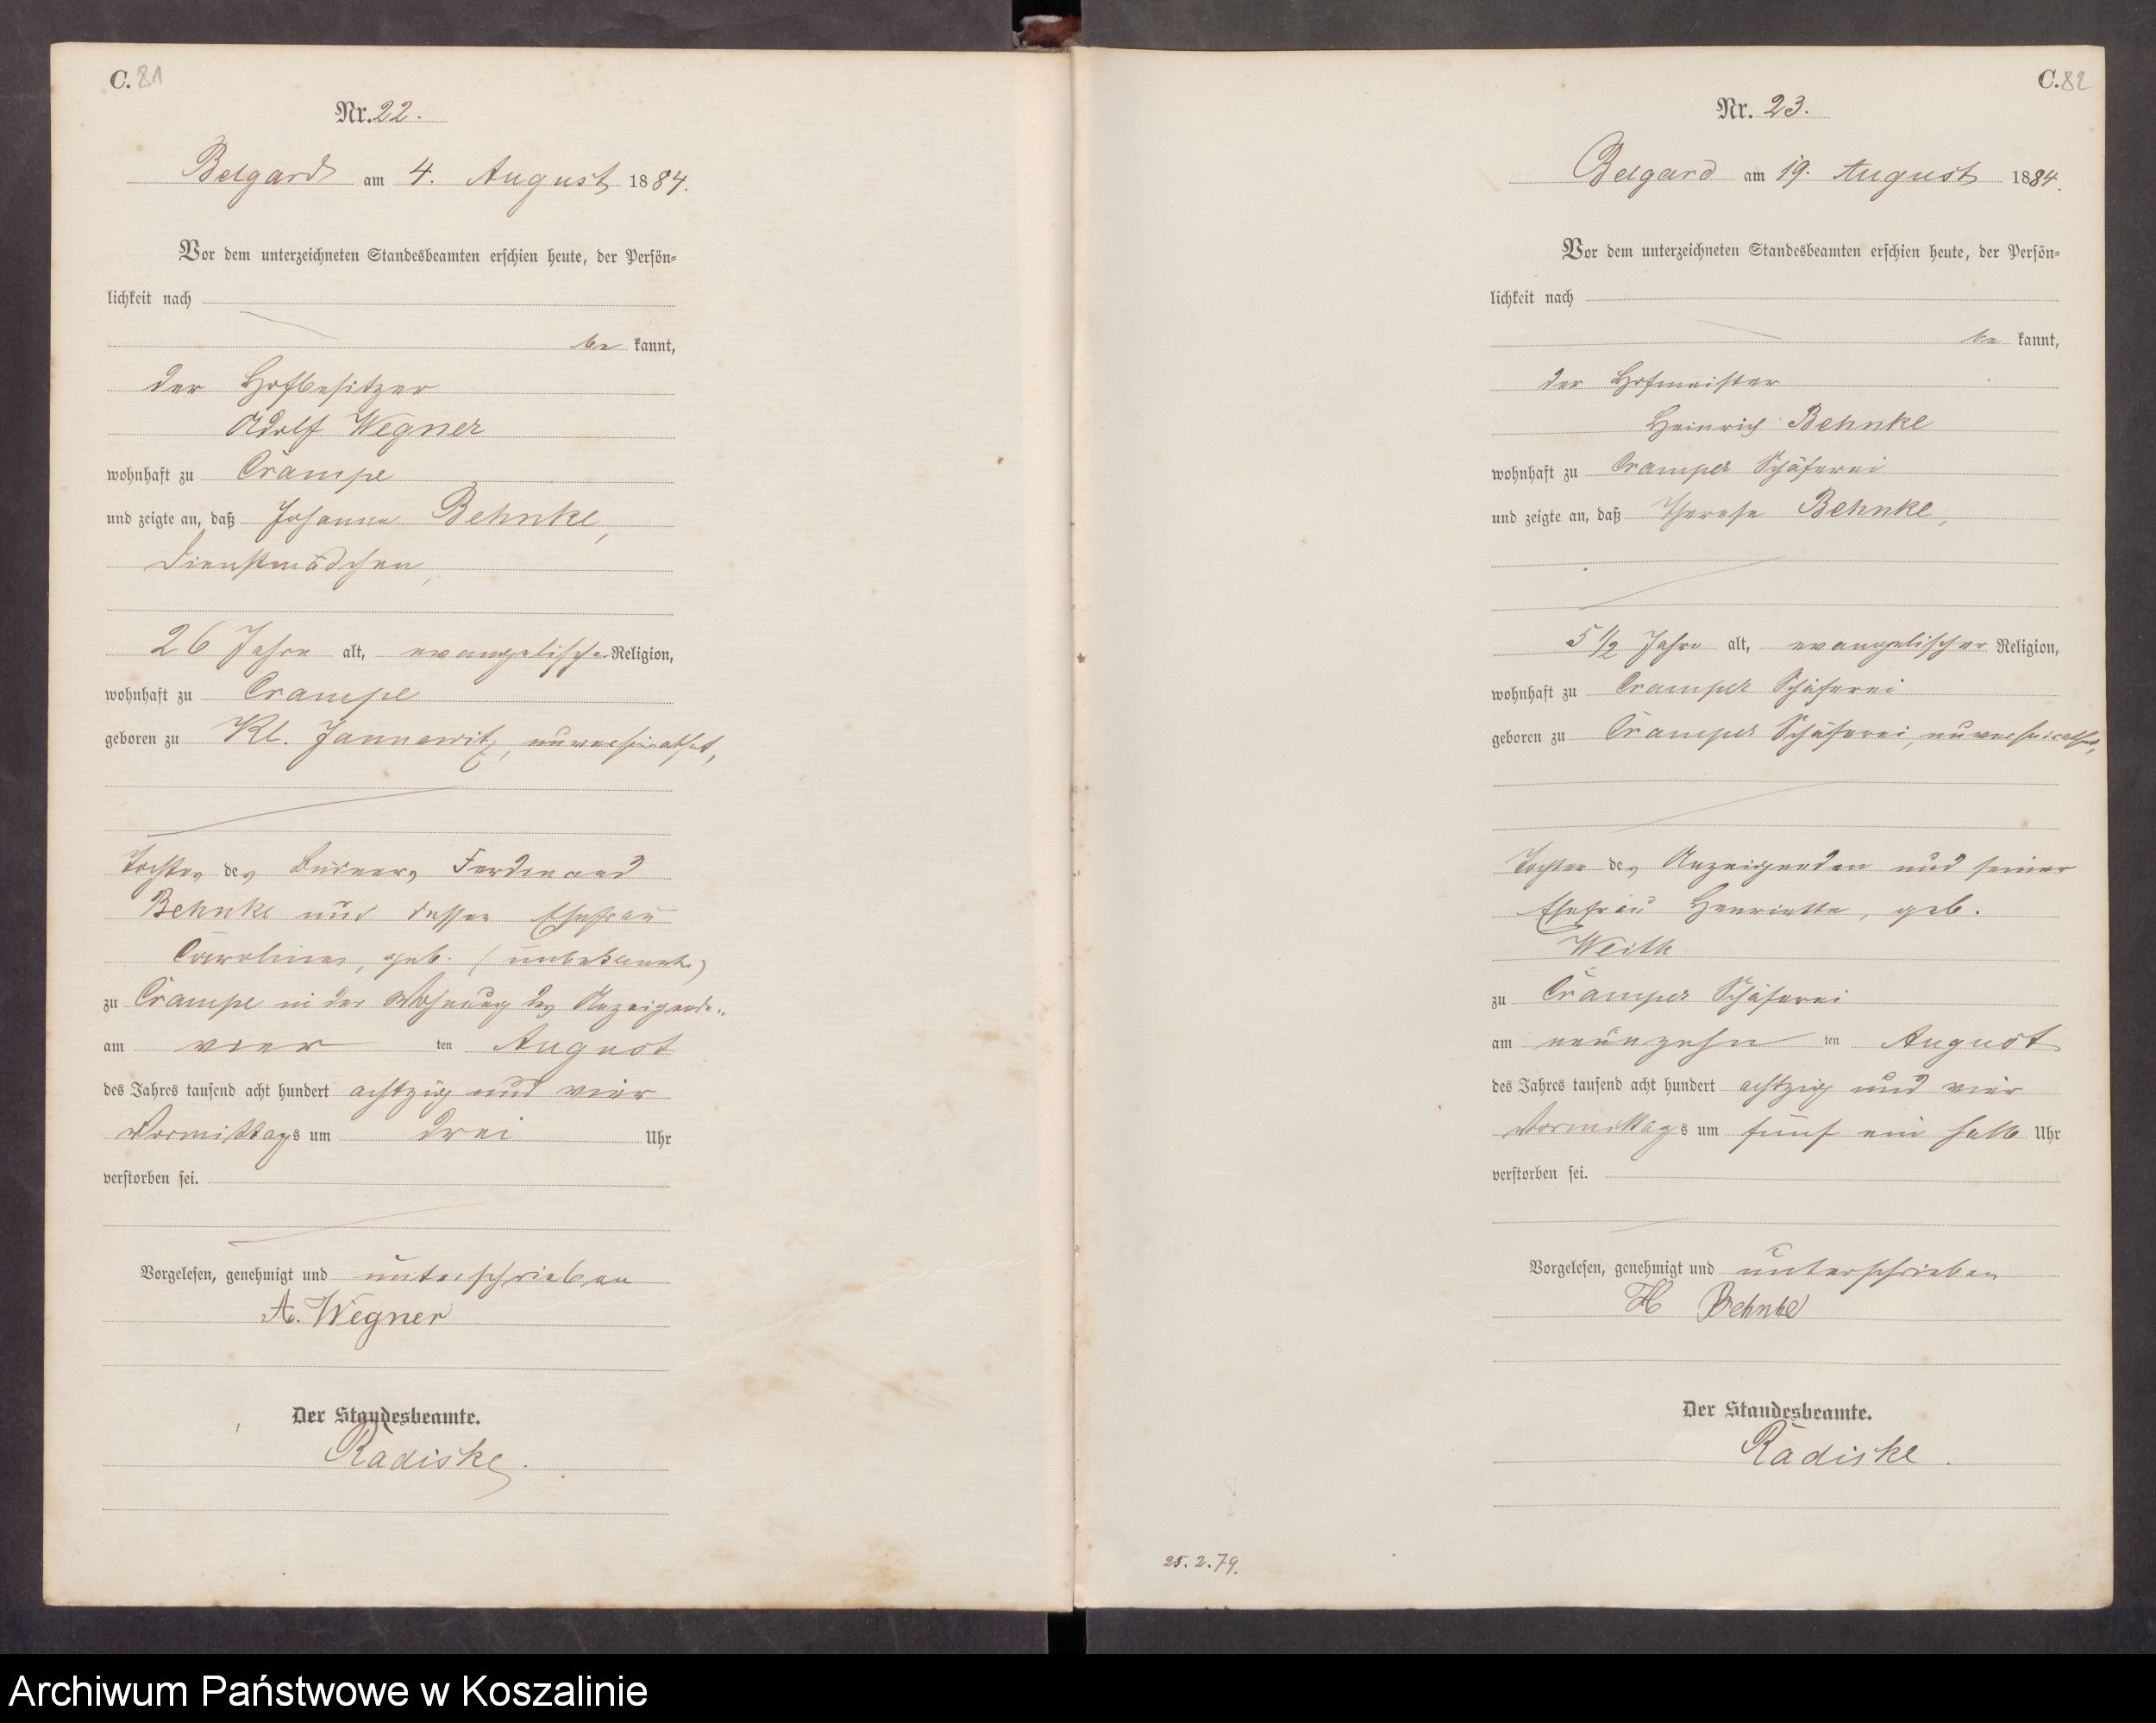 C. 81
Nr. 22.
Belgard am 4. August 1884.
Vor dem unterzeichneten Standesbeamten erschien heute, der Persön-
lichkeit nach
be kannt,
der Hofbesitzer
Adolf Wegner
wohnhaft zu Crampe
und zeigte an, daß Johanne Behnke,
Dienstmädchen,
26 Jahre alt, evangelischer Religion,
wohnhaft zu Crampe
geboren zu Kl. Jannewitz, unverheirathet,
Tochter des Ferdinand
Behnke und dessen Ehefrau
Caroline, geb. (unbekannt)
zu Crampe in der Wohnung des Anzeigenden
am vier ten August
des Jahres tausend acht hundert achtzig und vier
Vormittags um drei Uhr
verstorben sei.
Vorgelesen, genehmigt und unterschrieben
A. Wegner
Der Standesbeamte.
Radiske.
C. 82
Nr. 23.
Belgard am 19. August 1884.
Vor dem unterzeichneten Standesbeamten erschien heute, der Persön-
lichkeit nach
be kannt,
der Hofmeister
Heinrich Behnke
wohnhaft zu Cramper Schäferei
und zeigte an, daß Therese Behnke,
5 1/2 Jahre alt, evangelischer Religion,
wohnhaft zu Cramper Schäferei
geboren zu Cramper Schäferei, unverheirathet,
Tochter des Anzeigenden und seiner
Ehefrau Henriette, geb.
Weith
zu Cramper Schäferei
am neunzehn ten August
des Jahres tausend acht hundert achtzig und vier
Vormittags um fünf ein halb Uhr
verstorben sei.
Vorgelesen, genehmigt und unterschrieben
H Behnke
Der Standesbeamte.
Radiske.
25.2.79.
Archiwum Państwowe w Koszalinie